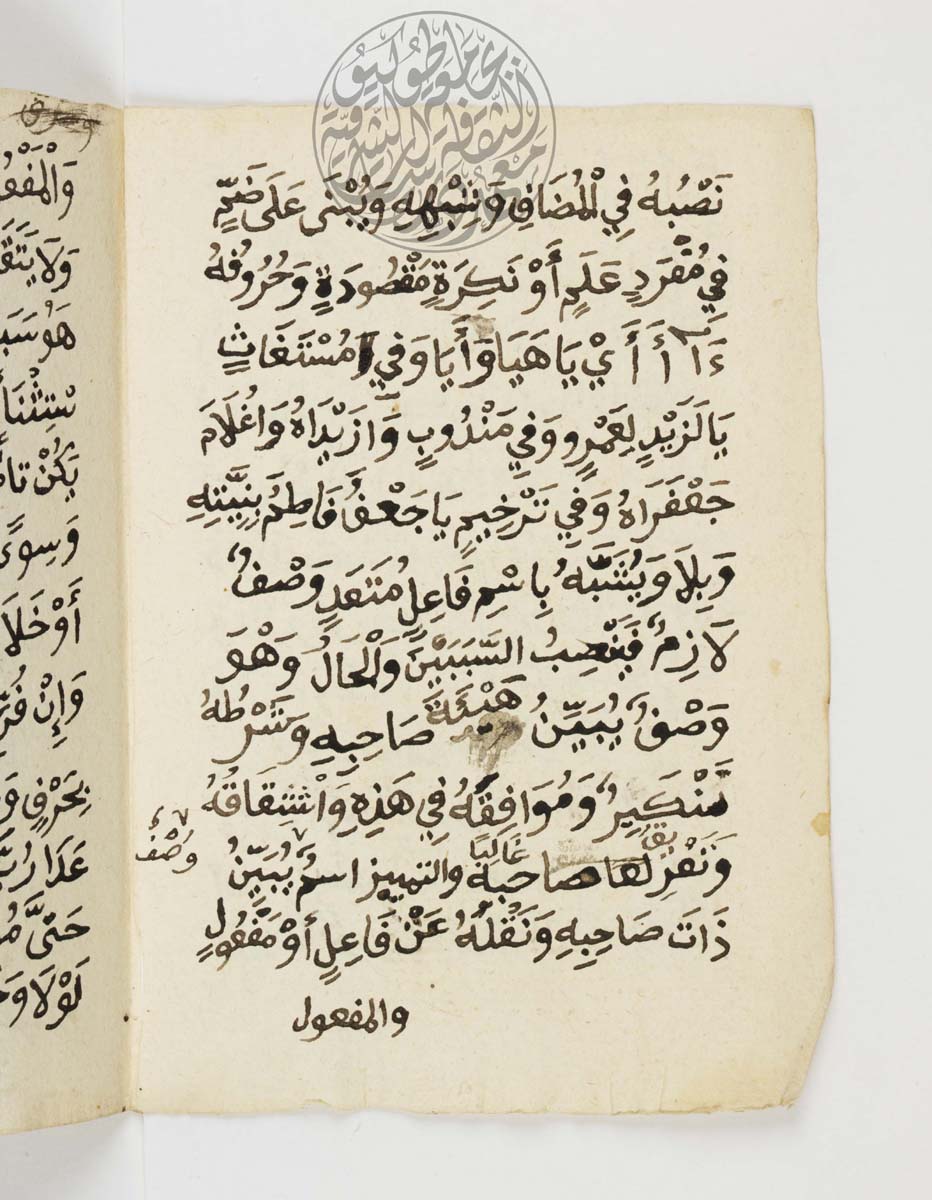 نَصْبُهُ فِي الْمُضَافِ وَشِبْهِهِ وَيُبْنَى عَلَى ضَمٍّ
فِي مُفْرَدٍ عَلَمٍ أَوْ نَكِرَةٍ مَقْصُودَةٍ وَحُرُوفُهُ
ءَا أَ أَيْ يَا هَيَا وَأَيَا وَفِي مُسْتَغَاثٍ
يَا لَزَيْدٍ لِعَمْرٍو وَفِي مَنْدُوبٍ وَازَيْدَاهُ وَاغُلَامَ
جَعْفَرَاهُ وَفِي تَرْخِيمٍ يَا جَعْفُ فَاطِمُ بِنِيَّتِهِ
وَبِلَا وَيُشَبَّهُ بِاسْمِ فَاعِلٍ مُتَعَدٍ وَصْفٌ
لَازِمٌ فَيَنْصِبُ السَّبَبَيْنِ وَالْحَالُ وَهْوَ
وَصْفٌ يُبَيِّنُ هَيْئَةَ صَاحِبِهِ وَشَرْطُهُ
تَنْكِيرٌ وَمُوَافِقُهُ فِي هَذِهِ وَاشْتِقَاقُهُ
وَصْفٌ
غَالِبًا
صَاحِبِهِ والتمييز اسْمٌ يُبَيِّنُ
ذَاتَ صَاحِبِهِ وَنَقْلُهُ عَنْ فَاعِلٍ أَوْ مَفْعُولٍ
والمفعول
وَالْمَفْعُو
وَلَا يَتَقَ
هُوَ سَبَ
سْتِثْنَا
يَكُنْ تَا
وَسِوًى
أَوْ خَلَا
وَإِنْ فُرِّ
بِحَرْفٍ
عَدَا رُبَّ
حَتَّى مُ
لَوْلَا وَ